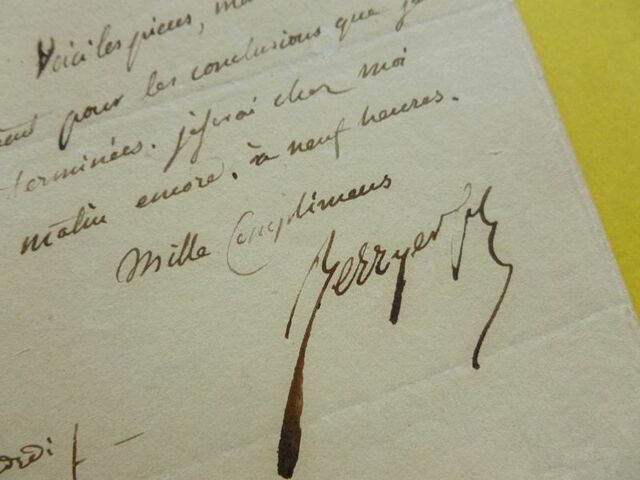 Voici les pièces, ma
pour les conclusions que j
terminées. je serai chez moi
matin encore, à neuf heures.
Mille Complimens
Berryer fils
dedi